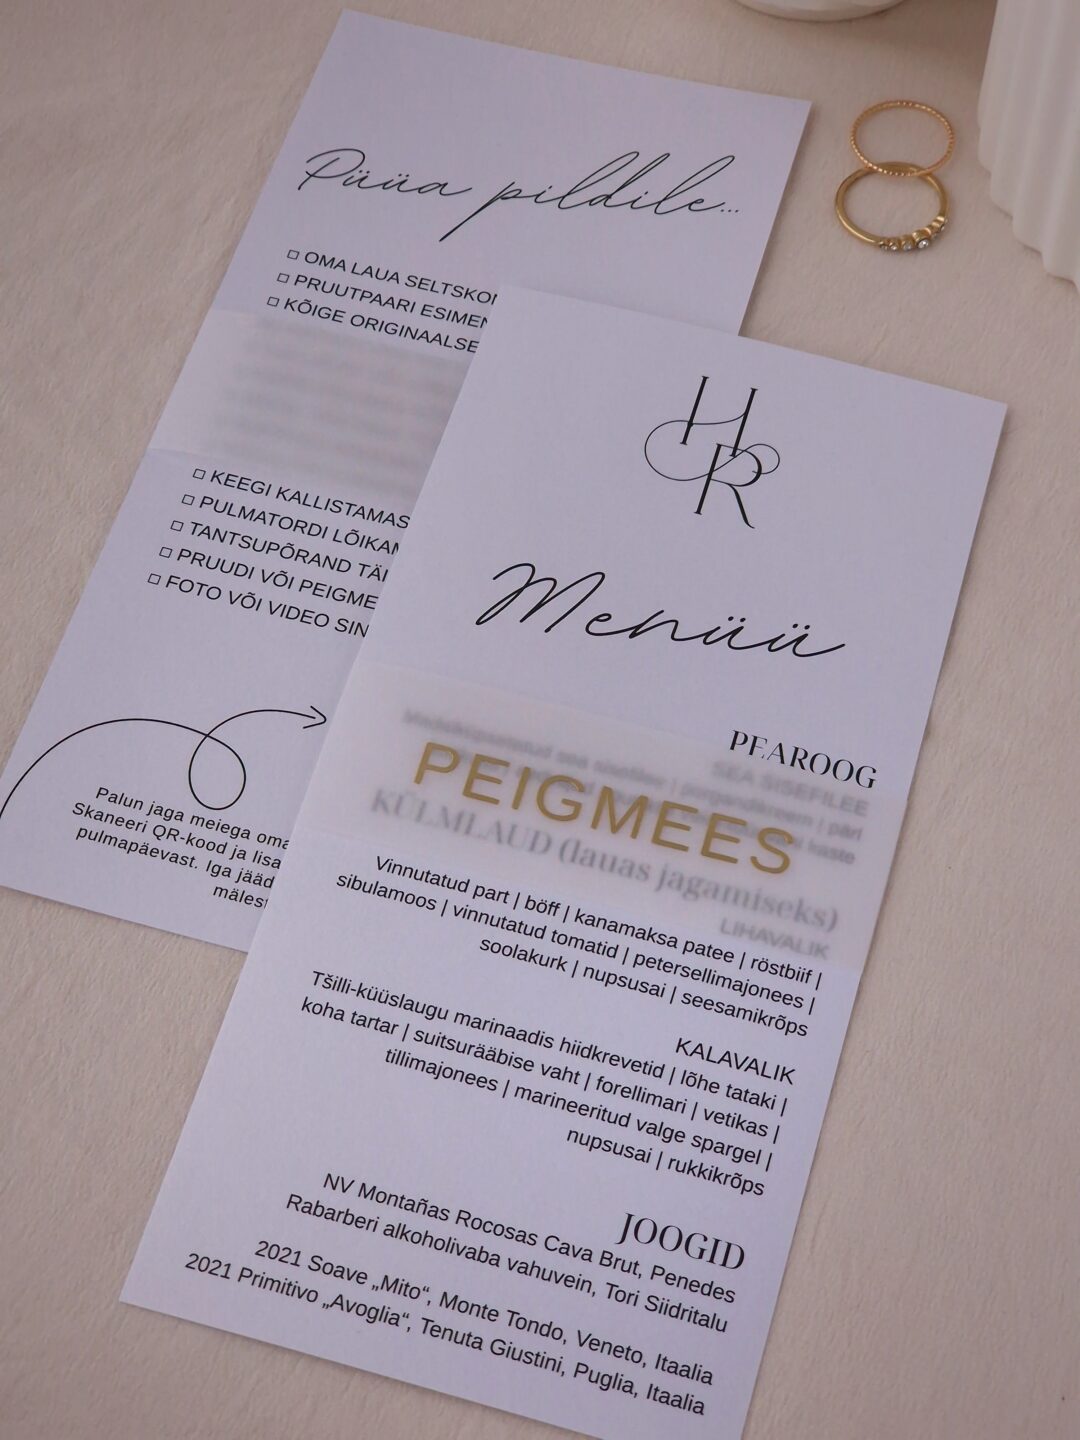 Püüa pildile...
□ OMA LAUA SELTSKON
□ PRUUTPAARI ESIMEN
□ KÕIGE ORIGINAALSE
□ KEEGI KALLISTAMAS
□ PULMATORDI LÕIKAM
□ TANTSUPÕRAND TÄI
□ PRUUDI VÕI PEIGME
□ FOTO VÕI VIDEO SIN
Palun jaga meiega oma
Skaneeri QR-kood ja lisa
pulmapäevast. Iga jääd
mäles
H
R
Menüü
PEAROOG
SEA SISEFILEE
PEIGMEES
KÜLMLAUD (lauas jagamiseks)
LIHAVALIK
Vinnutatud part | böff | kanamaksa patee | röstbiif |
sibulamoos | vinnutatud tomatid | petersellimajonees |
soolakurk | nupsusai | seesamikrõps
KALAVALIK
Tšilli-küüslaugu marinaadis hiidkrevetid | lõhe tataki |
koha tartar | suitsurääbise vaht | forellimari | vetikas |
tillimajonees | marineeritud valge spargel |
nupsusai | rukkikrõps
JOOGID
NV Montañas Rocosas Cava Brut, Penedes
Rabarberi alkoholivaba vahuvein, Tori Siidritalu
2021 Soave „Mito“, Monte Tondo, Veneto, Itaalia
2021 Primitivo „Avoglia“, Tenuta Giustini, Puglia, Itaalia